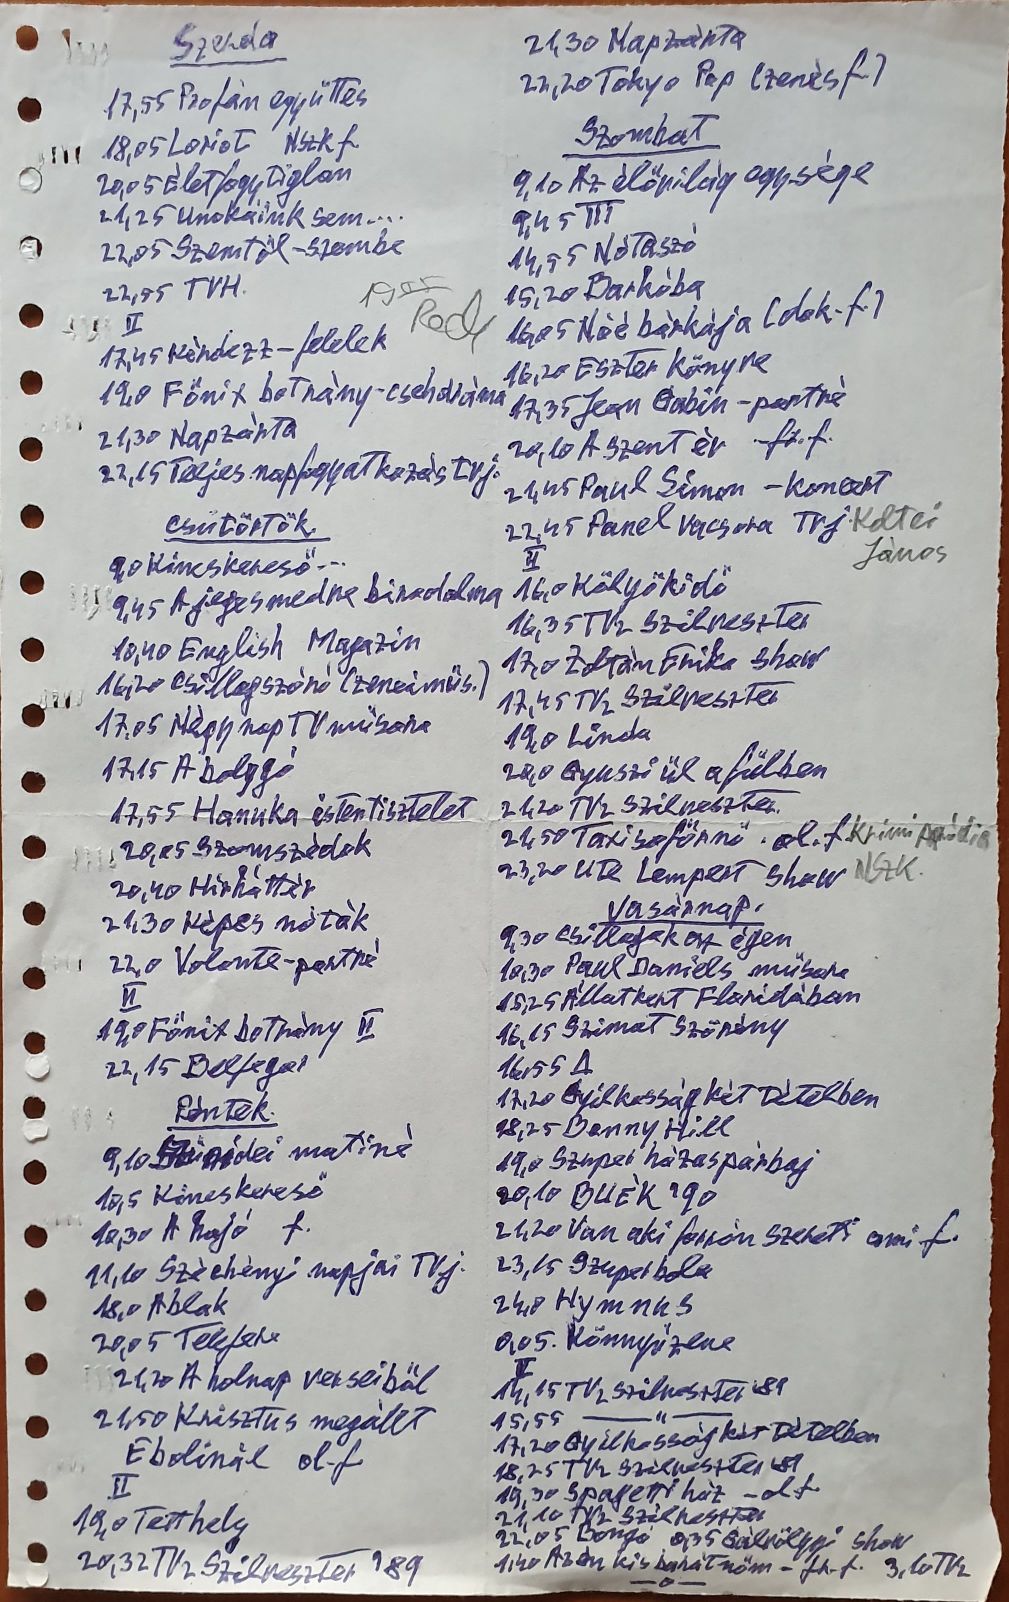 Szerda
17,55 Profán együttes
18,05 Loriot NSZK f.
20,05 Életfogytiglan
21,25 Unokáink sem....
22,05 Szemtől-szembe
22,55 TVH.
II
17,45 Kérdezz-felelek
19,0 Főnix botrány-csehdráma
21,30 Napzárta
22,15 Teljes napfogyatkozás Tvj.
Csütörtök.
9,0 Kincskereső...
9,45 A jegesmedve birodalma
10,40 English Magazin
16,20 Csillagszóró (zeneiműs.)
17,05 Négy nap TV műsora
17,15 A bolygó
17,55 Hanuka istentisztelet
20,05 Szomszédok
20,40 Hírháttér
21,30 Képes nóták
22,0 Volonte-portré
II
19,0 Főnix botrány II
22,15 Belfegor
Péntek.
9,10 Szünidei matiné
10,5 Kincskereső
10,30 A hajó f.
11,10 Széchényi napjai TVj.
18,0 Ablak
20,05 Telefere
21,20 A holnap verseiből
21,50 Krisztus megállt
Ebolinál ol-f
II
19,0 Tetthely
20,32 TV2 Szilveszter '89
21,30 Napzárta
22,20 Tokyo Pop (zenés f.)
Szombat
9,10 Az élővilág egysége
9,45 III
14,55 Nótaszó
15,20 Barkóba
16,05 Nóé bárkája (dok-f.)
16,20 Eszter könyve
17,35 Jean Gabin-portré
20,10 A szent év -fr.f.
21,45 Paul Simon - koncert
22,45 Panel vacsora TVj. Koltai
János
II
16,0 Kölyökidő
16,35 TV2 Szilveszter
17,0 Zoltán Erika show
17,45 TV2 Szilveszter
19,0 Linda
20,0 Gyuszi ül a fűlben
21,20 TV2 Szilveszter
21,50 Taxisofőrnő . ol.f. Krimi paródia
23,20 Ute Lempert show NSZK.
Vasárnap.
9,30 Csillagok az égen
10,30 Paul Daniels műsora
15,25 Állatkert Floridában
16,15 Szimat Szörény
16,55 Δ
17,20 Gyilkosság két tételben
18,25 Benny Hill
19,0 Szuper házaspárbaj
20,10 BUÉK '90
21,20 Van aki forrón szereti ami f.
23,15 Szuperbola
24,0 Hymnus
0,05. Könnyűzene
II
14,15 TV2 szilveszter '89
15,55 —— " ——
17,20 Gyilkosság két tételben
18,25 TV2 Szilveszter '89
19,30 Spagetti ház - ol f.
21,10 TV2 Szilveszter
22,05 Bongó 0,35 Gálvölgyi show
1,40 Azén kis barátnőm - fr.f. 3,10 TV2